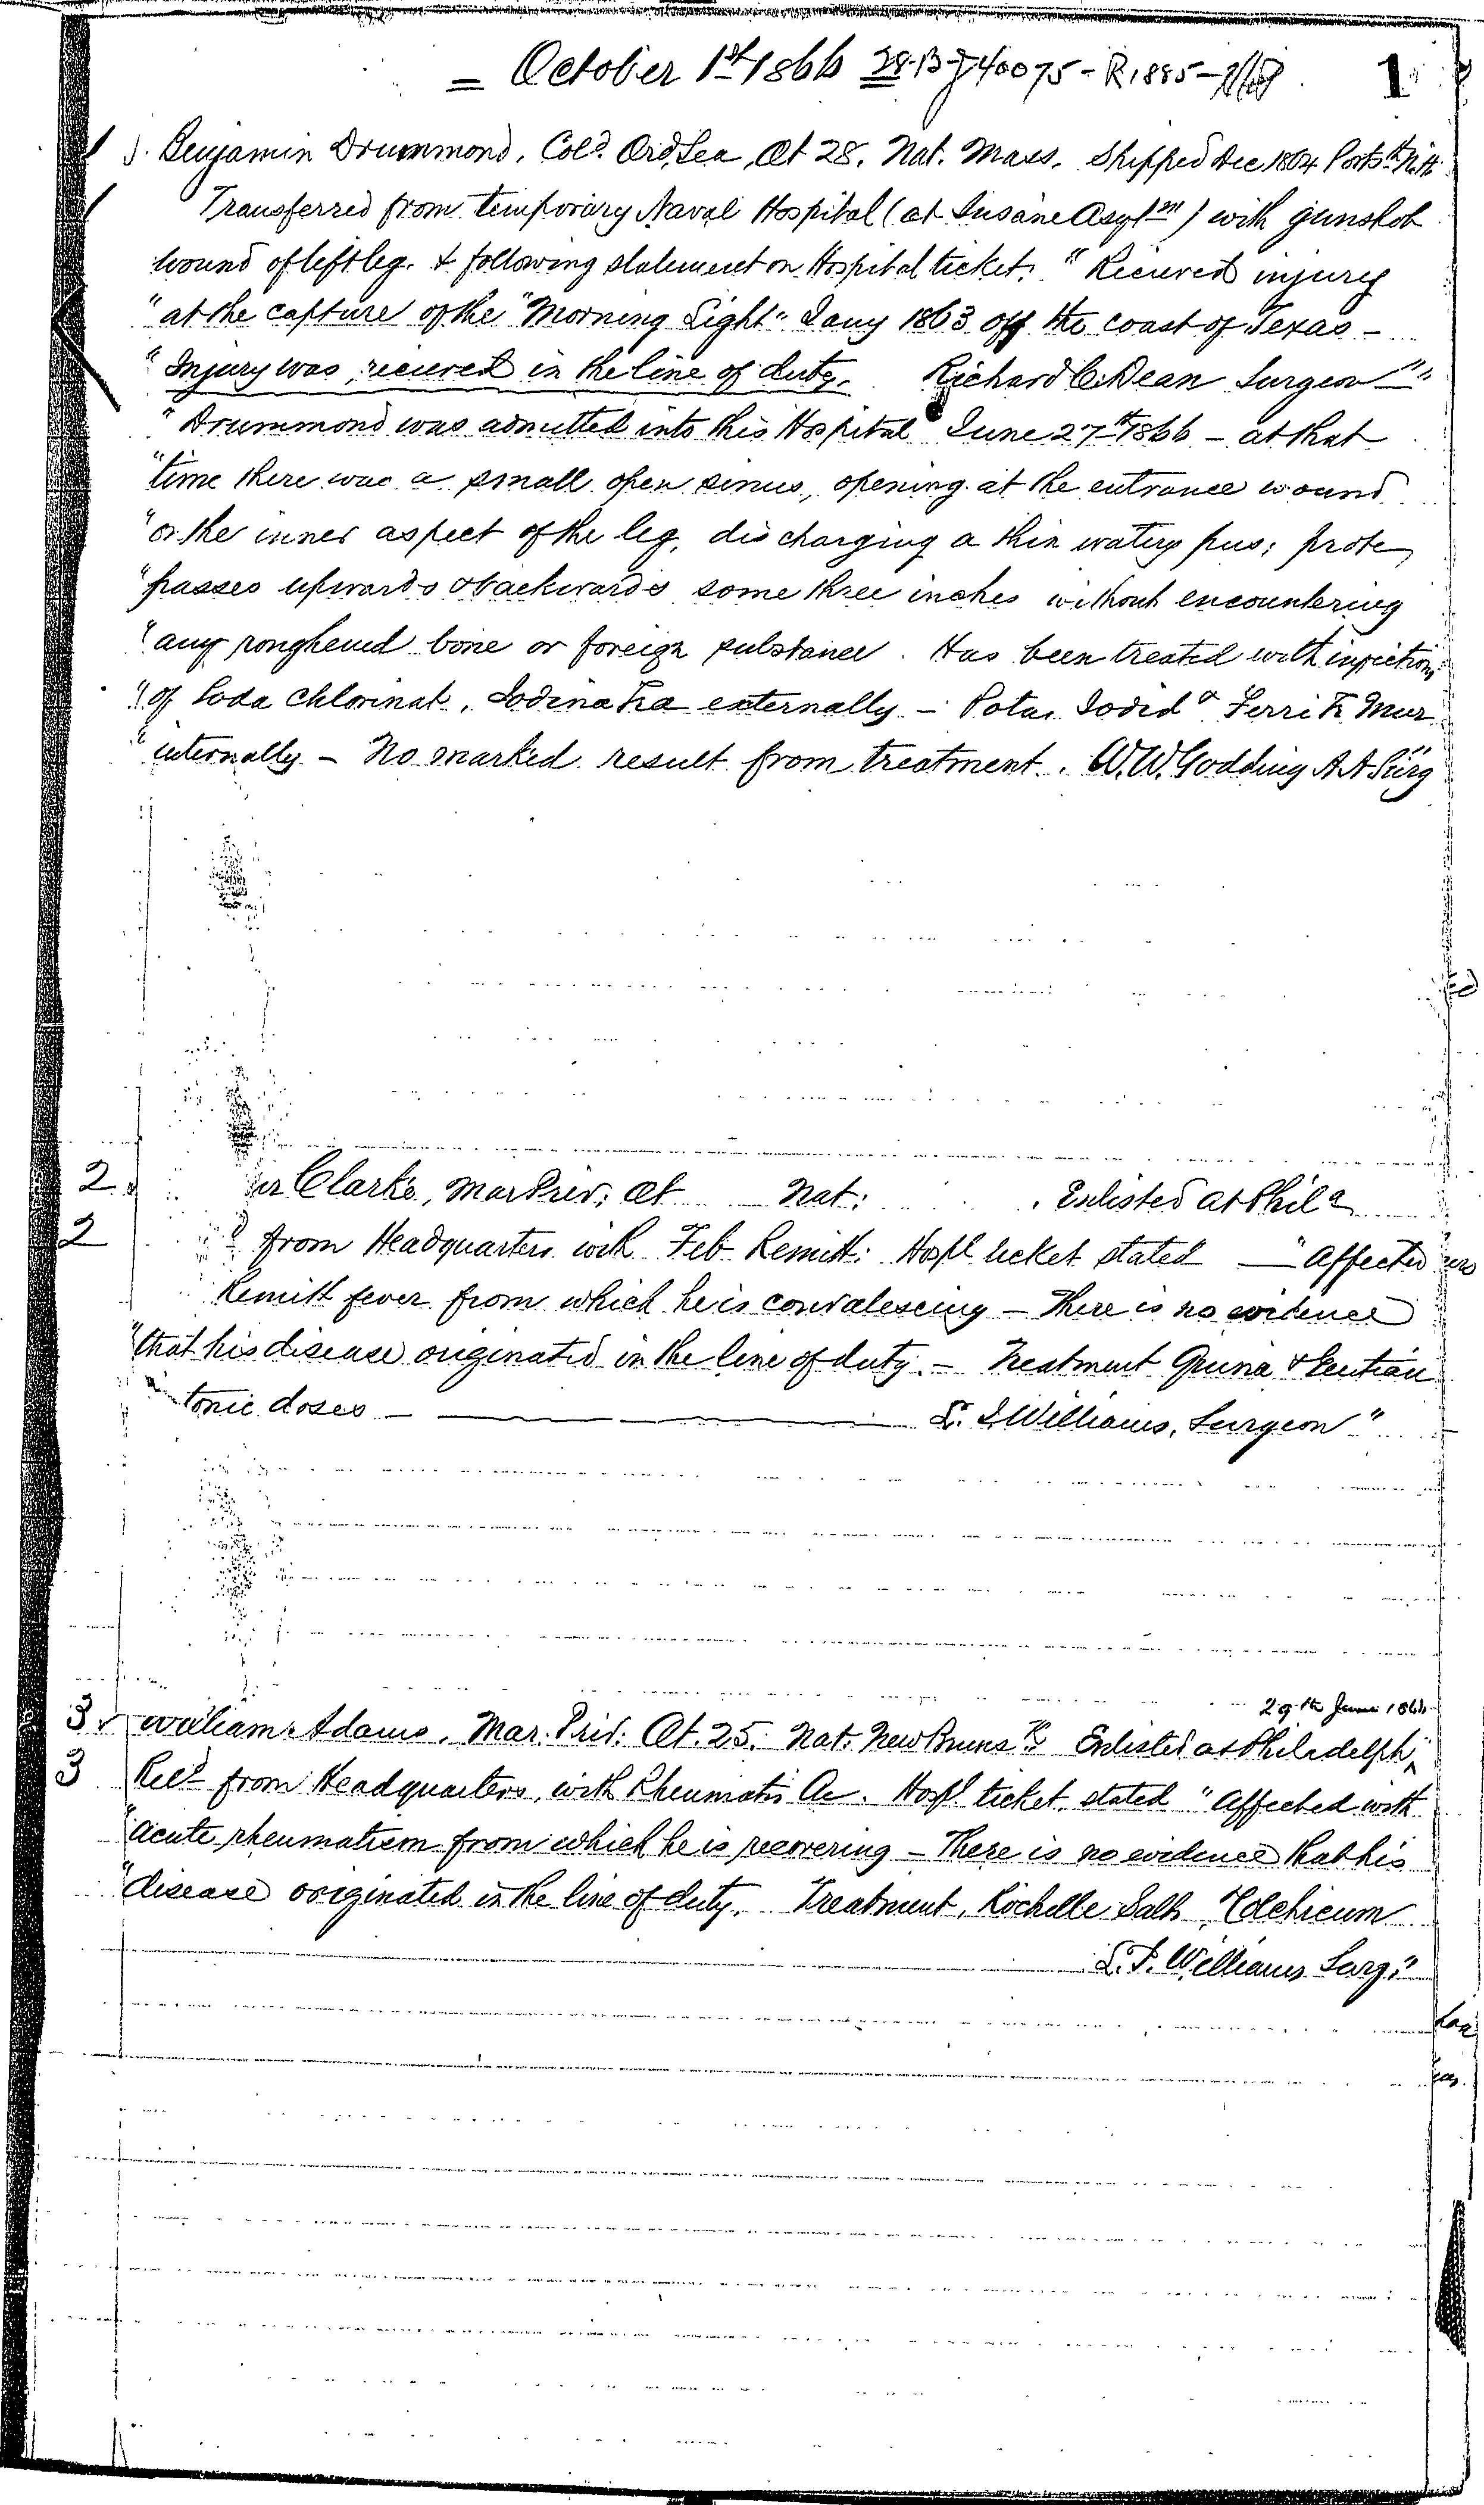 = October 1st 1866 28-B-J40075-R1885- 1
1 J. Benjamin Drummond, Cold. Ord. Sea, Æt 28. Nat. Mass. Shipped Dec 1864 Portsth N.H.
1 Transferred from temporary Naval Hospital (at Insane Asylm) with gunshot
wound of left leg. & following statement on Hospital ticket. "Recieved injury
"at the capture of the "Morning Light" Jany 1863 off the coast of Texas -
"Injury was recieved in the line of duty. Richard C. Dean Surgeon""
"Drummond was admitted into this Hospital June 27th 1866 - at that
"time there was a small open sinus, opening at the entrance wound
"on the inner aspect of the leg, discharging a thin watery pus; probe
"passes upwards & backwards some three inches without encountering
"any roughened bone or foreign substance. Has been treated with injections
"of Soda Chlorinat., Iodina Tra externally - Potas. Iodid & Ferri Tr. Mur.
"internally - No marked result from treatment. W. W. Godding A A Surg"
2 Clarke, Mar Priv: Æt Nat: . Enlisted at Phila
2 from Headquarters with Feb. Remitt: Hospl ticket stated — "Affected
Remitt fever from which he is convalescing - There is no evidence
"that his disease originated in the line of duty. - Treatment Quina & Gentian
tonic doses — Williams, Surgeon"
29th June 1864
3 William Adams, Mar. Priv: Æt. 25. Nat. New Bruns k. Enlisted at Philadelph
3 Recd from Headquarters, with Rheumatis Ac. Hospl ticket. stated "Affected with
"Acute rheumatism from which he is recovering - There is no evidence that his
"disease originated in the line of duty. Treatment, Rochelle Salts, Colchicum
L. J. Williams Surg."